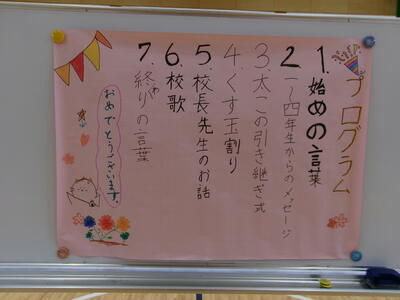 プログラム
1.始めの言葉
2.1~4年生からのメッセージ
3.太この引き継ぎ式
4.くす玉割り
5.校長先生のお話
6.校歌
7.終りの言葉
おめでとうございます。